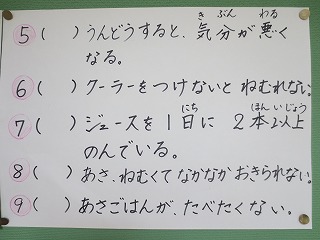 き ぶん わる
5 ( ) うんどうすると、気分が悪く
なる。
6 ( ) クーラーをつけないと ねむれない。
にち ほん いじょう
7 ( ) ジュースを 1日に 2本以上
のんでいる。
8 ( ) あさ、ねむくて なかなか おきられない。
9 ( ) あさごはんが、たべたくない。